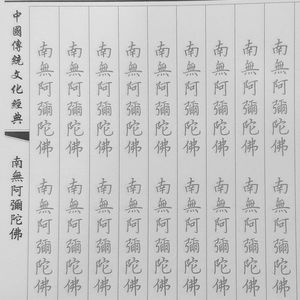 南無阿彌陀佛 南無阿彌陀佛
南無阿彌陀佛 南無阿彌陀佛
南無阿彌陀佛 南無阿彌陀佛
南無阿彌陀佛 南無阿彌陀佛
南無阿彌陀佛 南無阿彌陀佛
南無阿彌陀佛 南無阿彌陀佛
南無阿彌陀佛 南無阿彌陀佛
南無阿彌陀佛 南無阿彌陀佛
中國傳統文化經典
南無阿彌陀佛